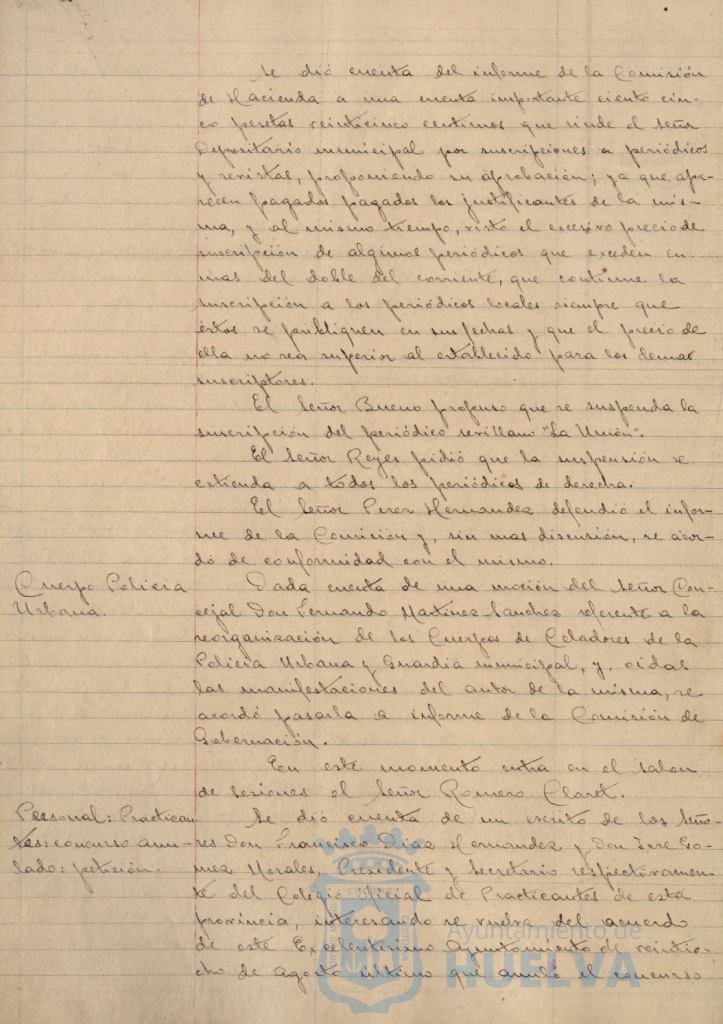 Se dió cuenta del informe de la Comisión
de Hacienda a una cuenta importante ciento cin-
co pesetas veinticinco centimos que rinde el Señor
Depositario municipal por suscripciones a periódicos
y revistas, proponiendo su aprobación; ya que apa-
recen pagados pagados los justificantes de la mis-
ma, y al mismo tiempo, visto el excesivo precio de
suscripción de algunos periódicos que exceden en
mas del doble del corriente, que continue la
suscripción a los periódicos locales siempre que
éstos se publiquen en sus fechas y que el precio de
ella no sea superior al establecido para los demas
suscriptores.
El Señor Bueno propuso que se suspenda la
suscripción del periódico sevillano "La Unión".
El Señor Reyes pidió que la suspensión se
extienda a todos los periódicos de derecha.
El Señor Perez Hernandez defendió el infor-
me de la Comisión y, sin mas discusión, se acor-
dó de conformidad con el mismo.
Cuerpo Policia
Urbana.
Dada cuenta de una moción del Señor Con-
cejal Don Fernando Martinez Sanchez referente a la
reorganización de los Cuerpos de Celadores de la
Policia Urbana y Guardia municipal, y, oidas
las manifestaciones del autor de la misma, se
acordó pasarla a informe de la Comisión de
Gobernación.
En este momento entra en el salon
de sesiones el Señor Romero Claret.
Personal: Practican-
tes: concurso anu-
lado: petición.
Se dió cuenta de un escrito de los Seño-
res Don Francisco Diaz Hernandez y Don Jose Go-
mez Morales, Presidente y Secretario respectivamen-
te del Colegio Oficial de Practicantes de esta
provincia, interesando se vuelva del acuerdo
de este Excelentisimo Ayuntamiento de veintio-
cho de agosto ultimo que anuló el concurso
Ayuntamiento de
HUELVA